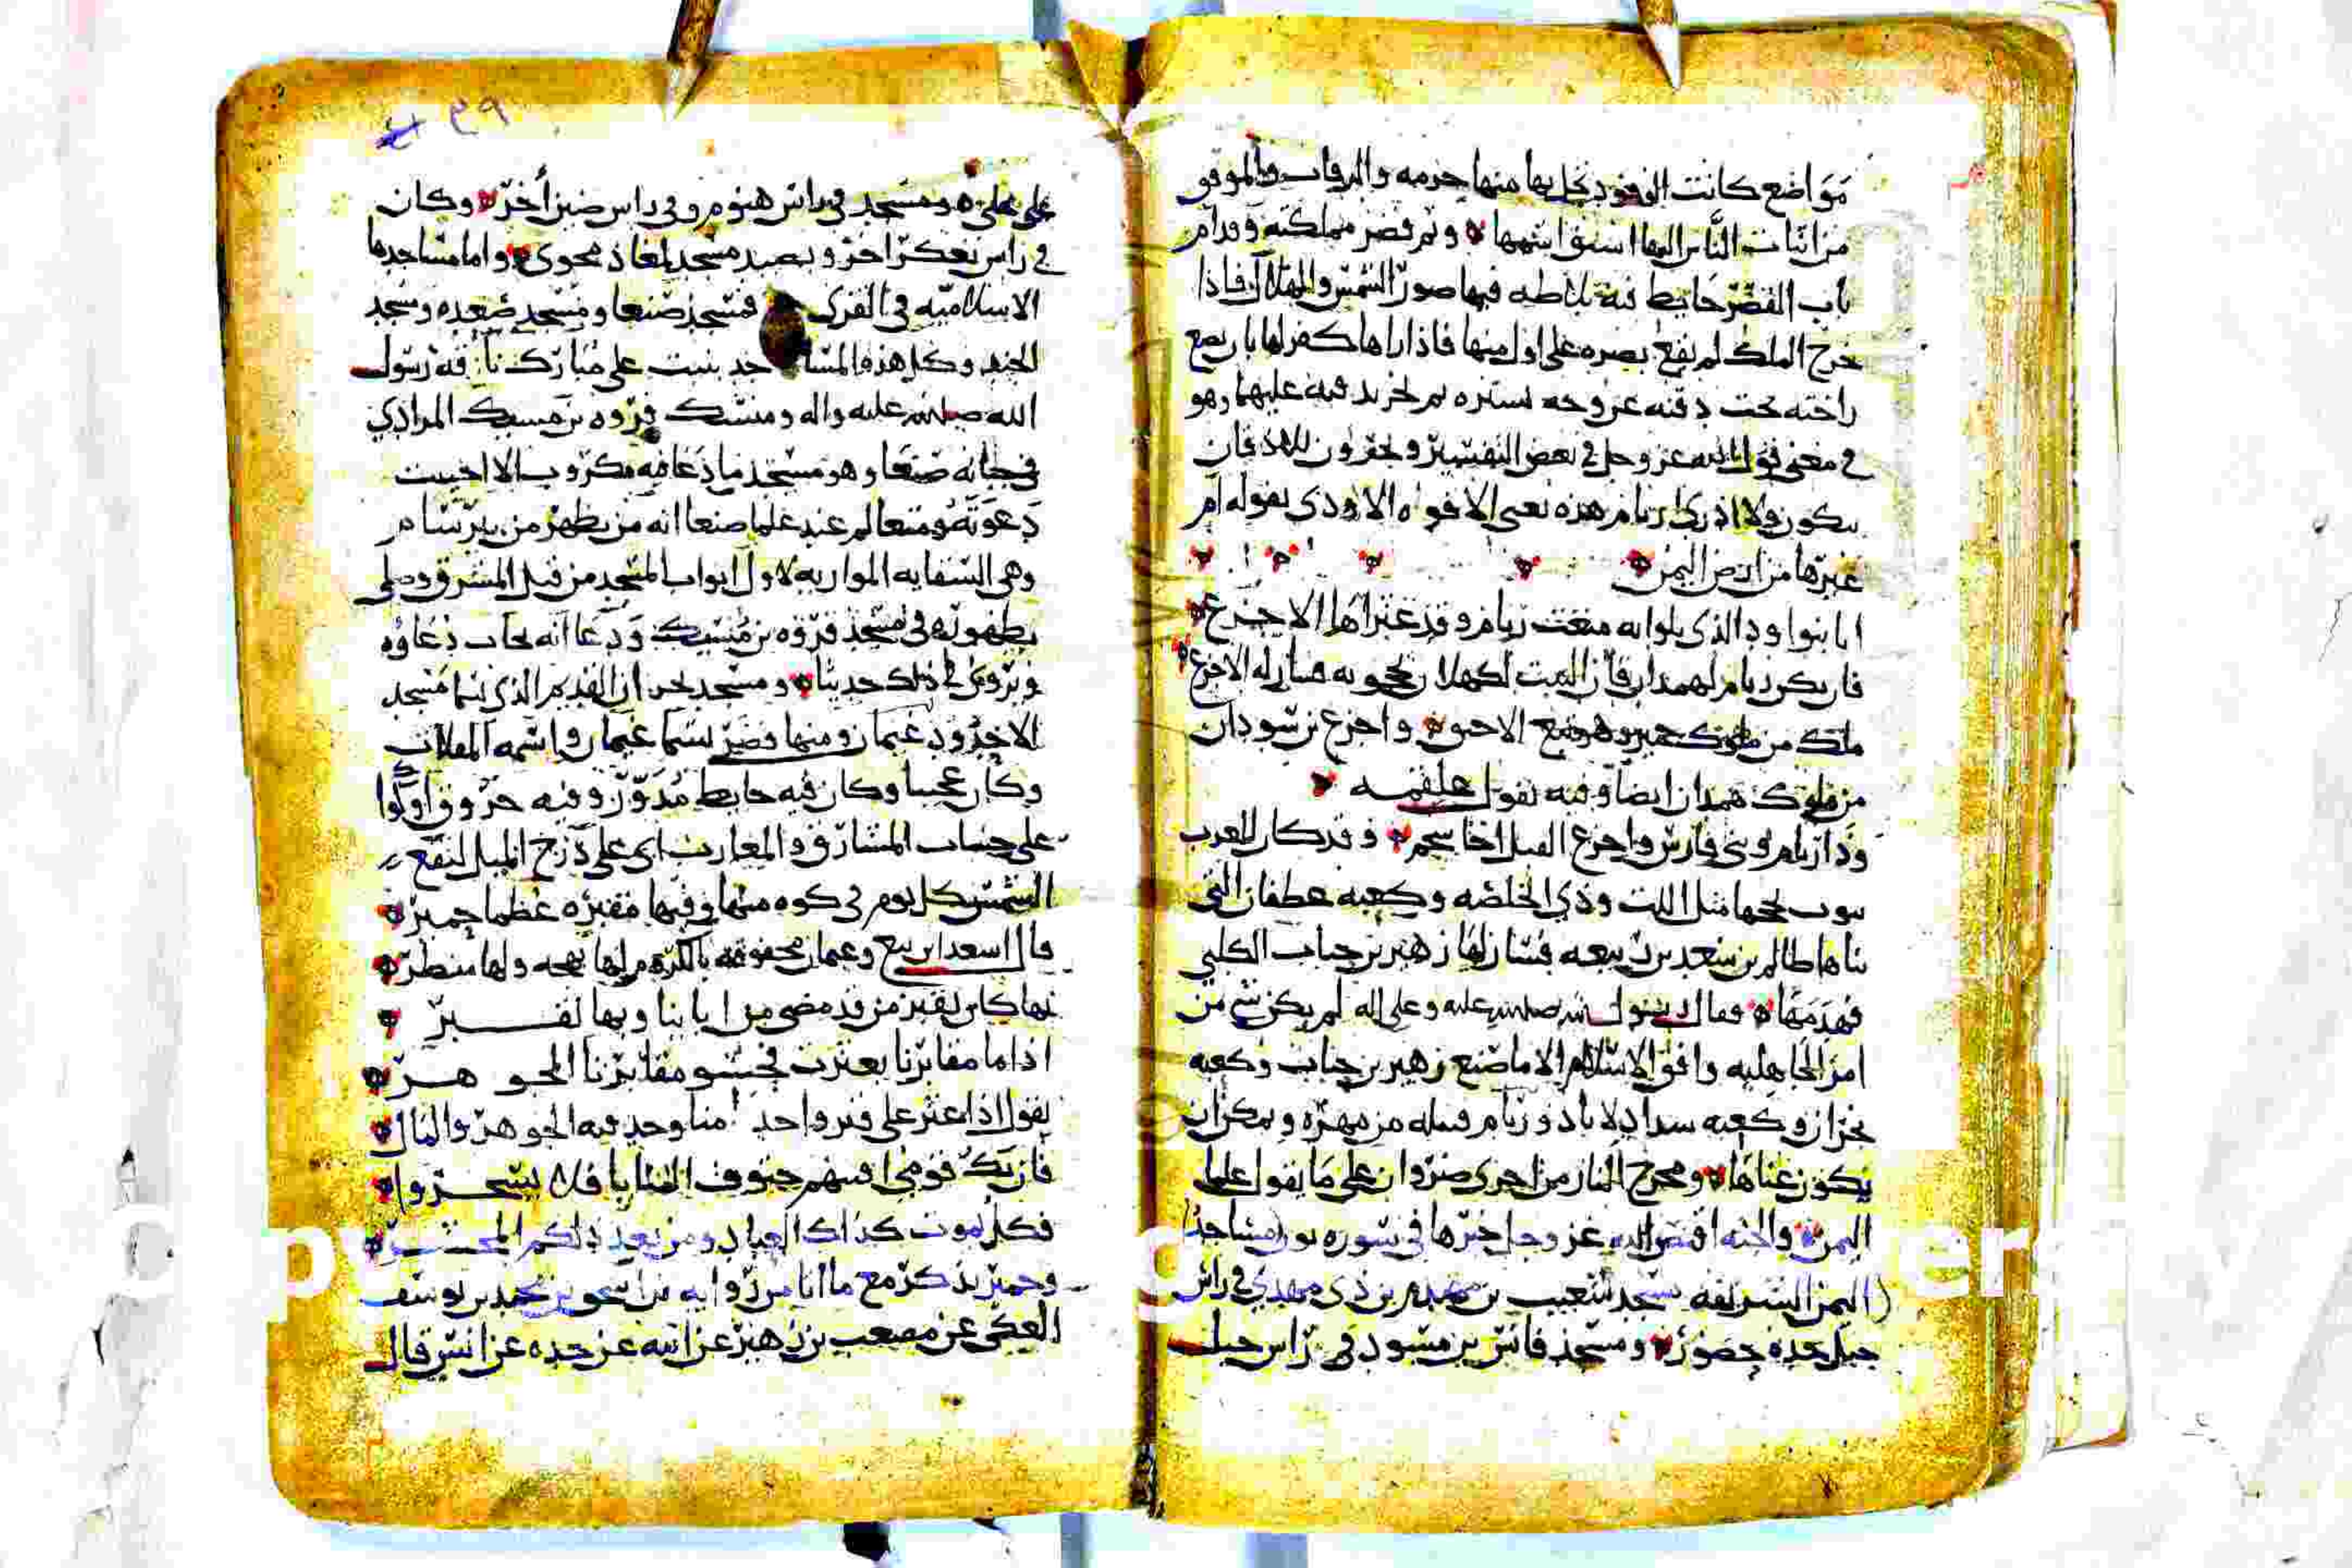 مَوَاضع كانت الوفود تحل بها منها حزمه والمرقاب والموفق
من اتيات الناس اليها اشتق اسمها ۞ وثم قصر مملكته وقدام
باب القصر حايط فيه بلاطه فيها صورة الشمس والهلال فاذا
خرج الملك لم يقع بصره على اول منها فاذا راها كفر لها بان يضع
راحته تحت ذقنه عن وجه يستره ثم يخر بذقنه عليهما وهو
في معنى قول الله عز وجل في بعض التفسير ويخرون للاذقان
يبكون ولا ادري رئام هذه يعني الافوه الاودي بقوله ام
غيرها من ارض اليمن
انا بنوا ود الذي بلوايه منعت رئام وقد غزاها الاجدع
فان يكن رئام لهمدان فان البيت لكهلان يحجونه
ملك من ملوك حمير
من ملوك همدان ايضا وفيه يقول علقمه
وذا رئام وبني فارس واجزع القيل اخا يحم ۞ وقد كان للعرب
بيوت تحجها مثل اللت وذي الخلصه وكعبه غطفان التي
بناها ظالم بن سعد بن ربيعه فسار لها زهير بن جناب الكلبي
فهدمها ۞ فقال رسول الله صلى الله عليه وعلى اله لم يكن شي من
امر الجاهليه وافق الاسلام الا ما صنع زهير بن جناب وكعبه
نجران وكعبه سداد لاياد ورئام قبله من مهره ومكران
يكون غناها ۞ ومخرج النار من احرى ضروان على ما يقول علما
اليمن ۞ والجنه اقتص الله عز وجل خبرها في سوره نون مساجد
اليمن الشريفه مسجد شعيب بن مهدم بن ذي مهدم في راس
جبل حده حضور ۞ ومسجد فائش بن مسود في راس جبل
على على ۞ ومسجد في راس هنوم وفي راس ضين أخر ۞ وكان
في راس تعكر اخر وبصيد مسجد لمعاذ محوي ۞ واما مساجدها
الاسلاميه في القرى فمسجد صنعا ومسجد صعده ومسجد
الجند وكل هذه المساجد بنيت على مبارك ناقه رسول
الله صلى الله عليه واله ومسيك فروه بن مسيك المرادي
في جبانه صنعا وهو مسجد ما دعا فيه مكروب الا اجيبت
دعوته ومتعالم عند علما صنعا انه من يظهر من بير سام
وهي السقايه الموازيه لاول ابواب المسجد من قبل المشرق وصلى
بطهوره في مسجد فروه بن مسيك ودعا انه يجاب دعاؤه
ويروى في ذلك حديثا ۞ ومسجد نجران القديم الذي
الاخدود غيمان ومنها قصر يسما غيمان واسمه المقلاب
وكان عجيبا وكان فيه حايط مدور وفيه خروق او كوا
على حساب المشارق والمغارب اي على درج الميل لتقع
الشمس كل يوم في كوه منها وفيها مقبره عظما حمير ۞
قال اسعد ابن تبع وغيمان محفوفه بالكرم لها بهجه ولها منظر ۞
بها كان يقبر من قد مضى من ابائنا وبها نقبر ۞
اذا ما مقابرنا بعثرت فحشو مقابرنا الجوهر ۞
يقول اذا عثر على قبر واحد منا وجد فيه الجوهر والمال ۞
فان يك قومي افنتهم حتوف المنايا فلا يسخروا ۞
فكل يموت كذاك العباد ومن بعد ذلكم المحشر ۞
وحمير يذكر مع ما اتانا من روايه بن اسحق بن محمد بن يوسف
العكي عن مصعب بن زهير عن ابيه عن جده عن انس قال